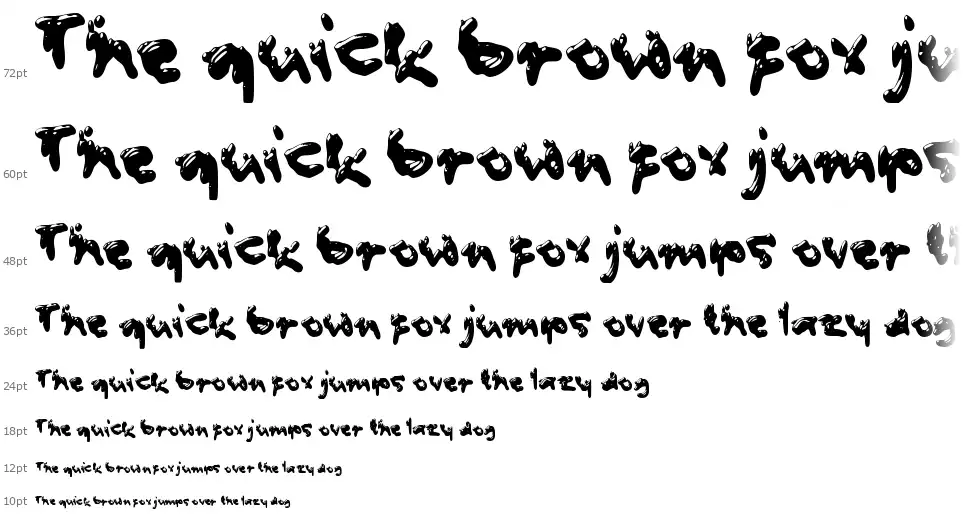 72pt The quick brown fox ju
60pt The quick brown fox jumps
48pt The quick brown fox jumps over
36pt The quick brown fox jumps over the lazy dog
24pt The quick brown fox jumps over the lazy dog
18pt The quick brown fox jumps over the lazy dog
12pt The quick brown fox jumps over the lazy dog
10pt The quick brown fox jumps over the lazy dog